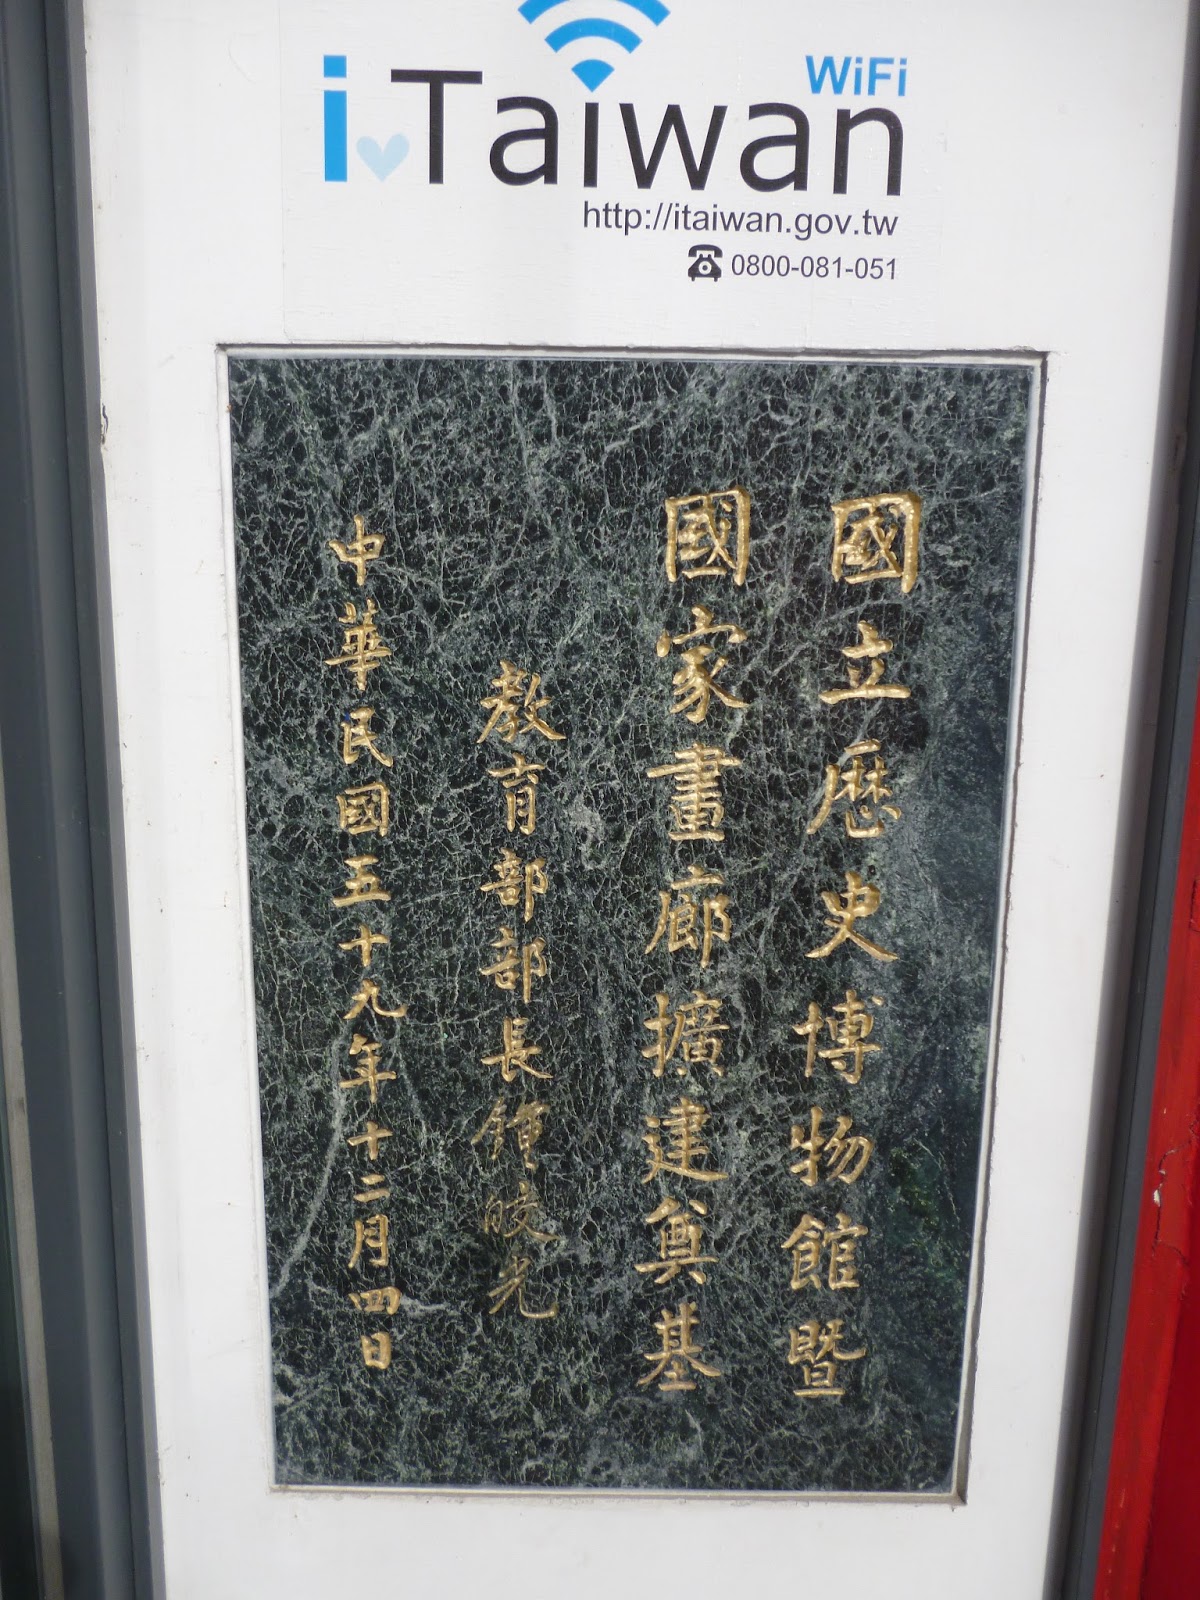 WiFi
i Taiwan
http://itaiwan.gov.tw
0800-081-051
國立歷史博物館暨
國家畫廊擴建奠基
教育部部長鍾皎光
中華民國五十九年十二月四日